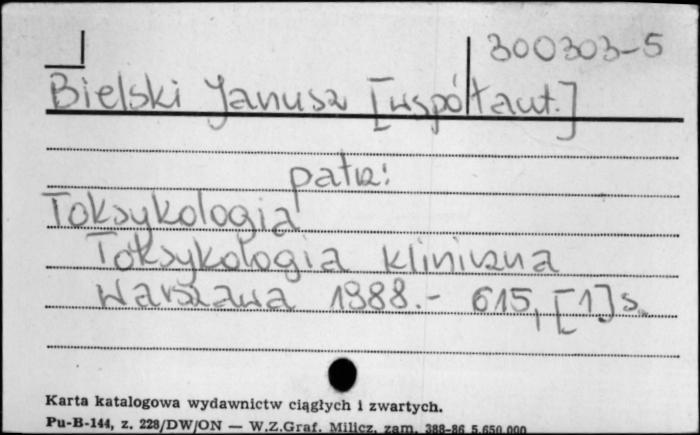 300303-5
Bielski Janusz [współaut.]
patrz:
Toksykologia
Toksykologia kliniczna
Warszawa 1988.- 615, [1] s.
Karta katalogowa wydawnictw ciągłych i zwartych.
Pu-B-144, z. 228/DW/ON — W.Z.Graf. Milicz, zam. 388-86 5.650.000